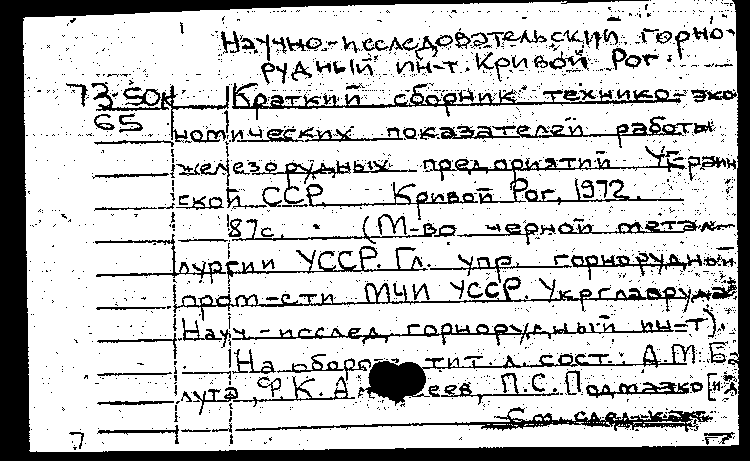 Научно-исследовательский горно-
рудный ин-т. Кривой Рог.
73-50к Краткий сборник технико-эко
65 номических показателей работы
железорудных предприятий Украин
ской ССР. Кривой Рог, 1972.
87с. (М-во черной метал-
лургии УССР. Гл. упр. горнорудный
пром-сти МЧМ УССР. Укрглавруда
Науч.-исслед. горнорудный ин-т).
На обороте тит. л. сост.: А.М. Ба
лута, Ф.К. П.С. Подмазко [и
См. след. карт.
7